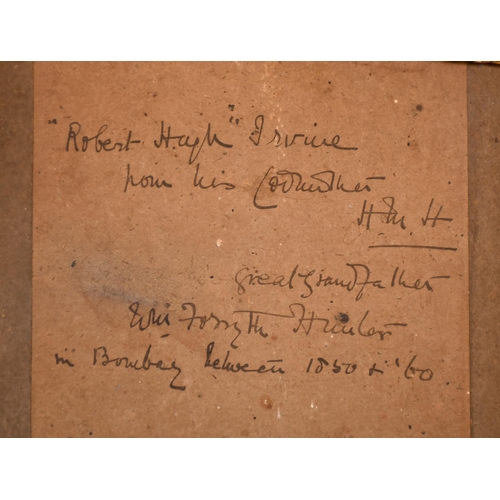 "Robert Hugh" Irvine
from his Godmother
H M H
Great Grandfather
Forsyth Hunter
in Bombay between 1850 & '60